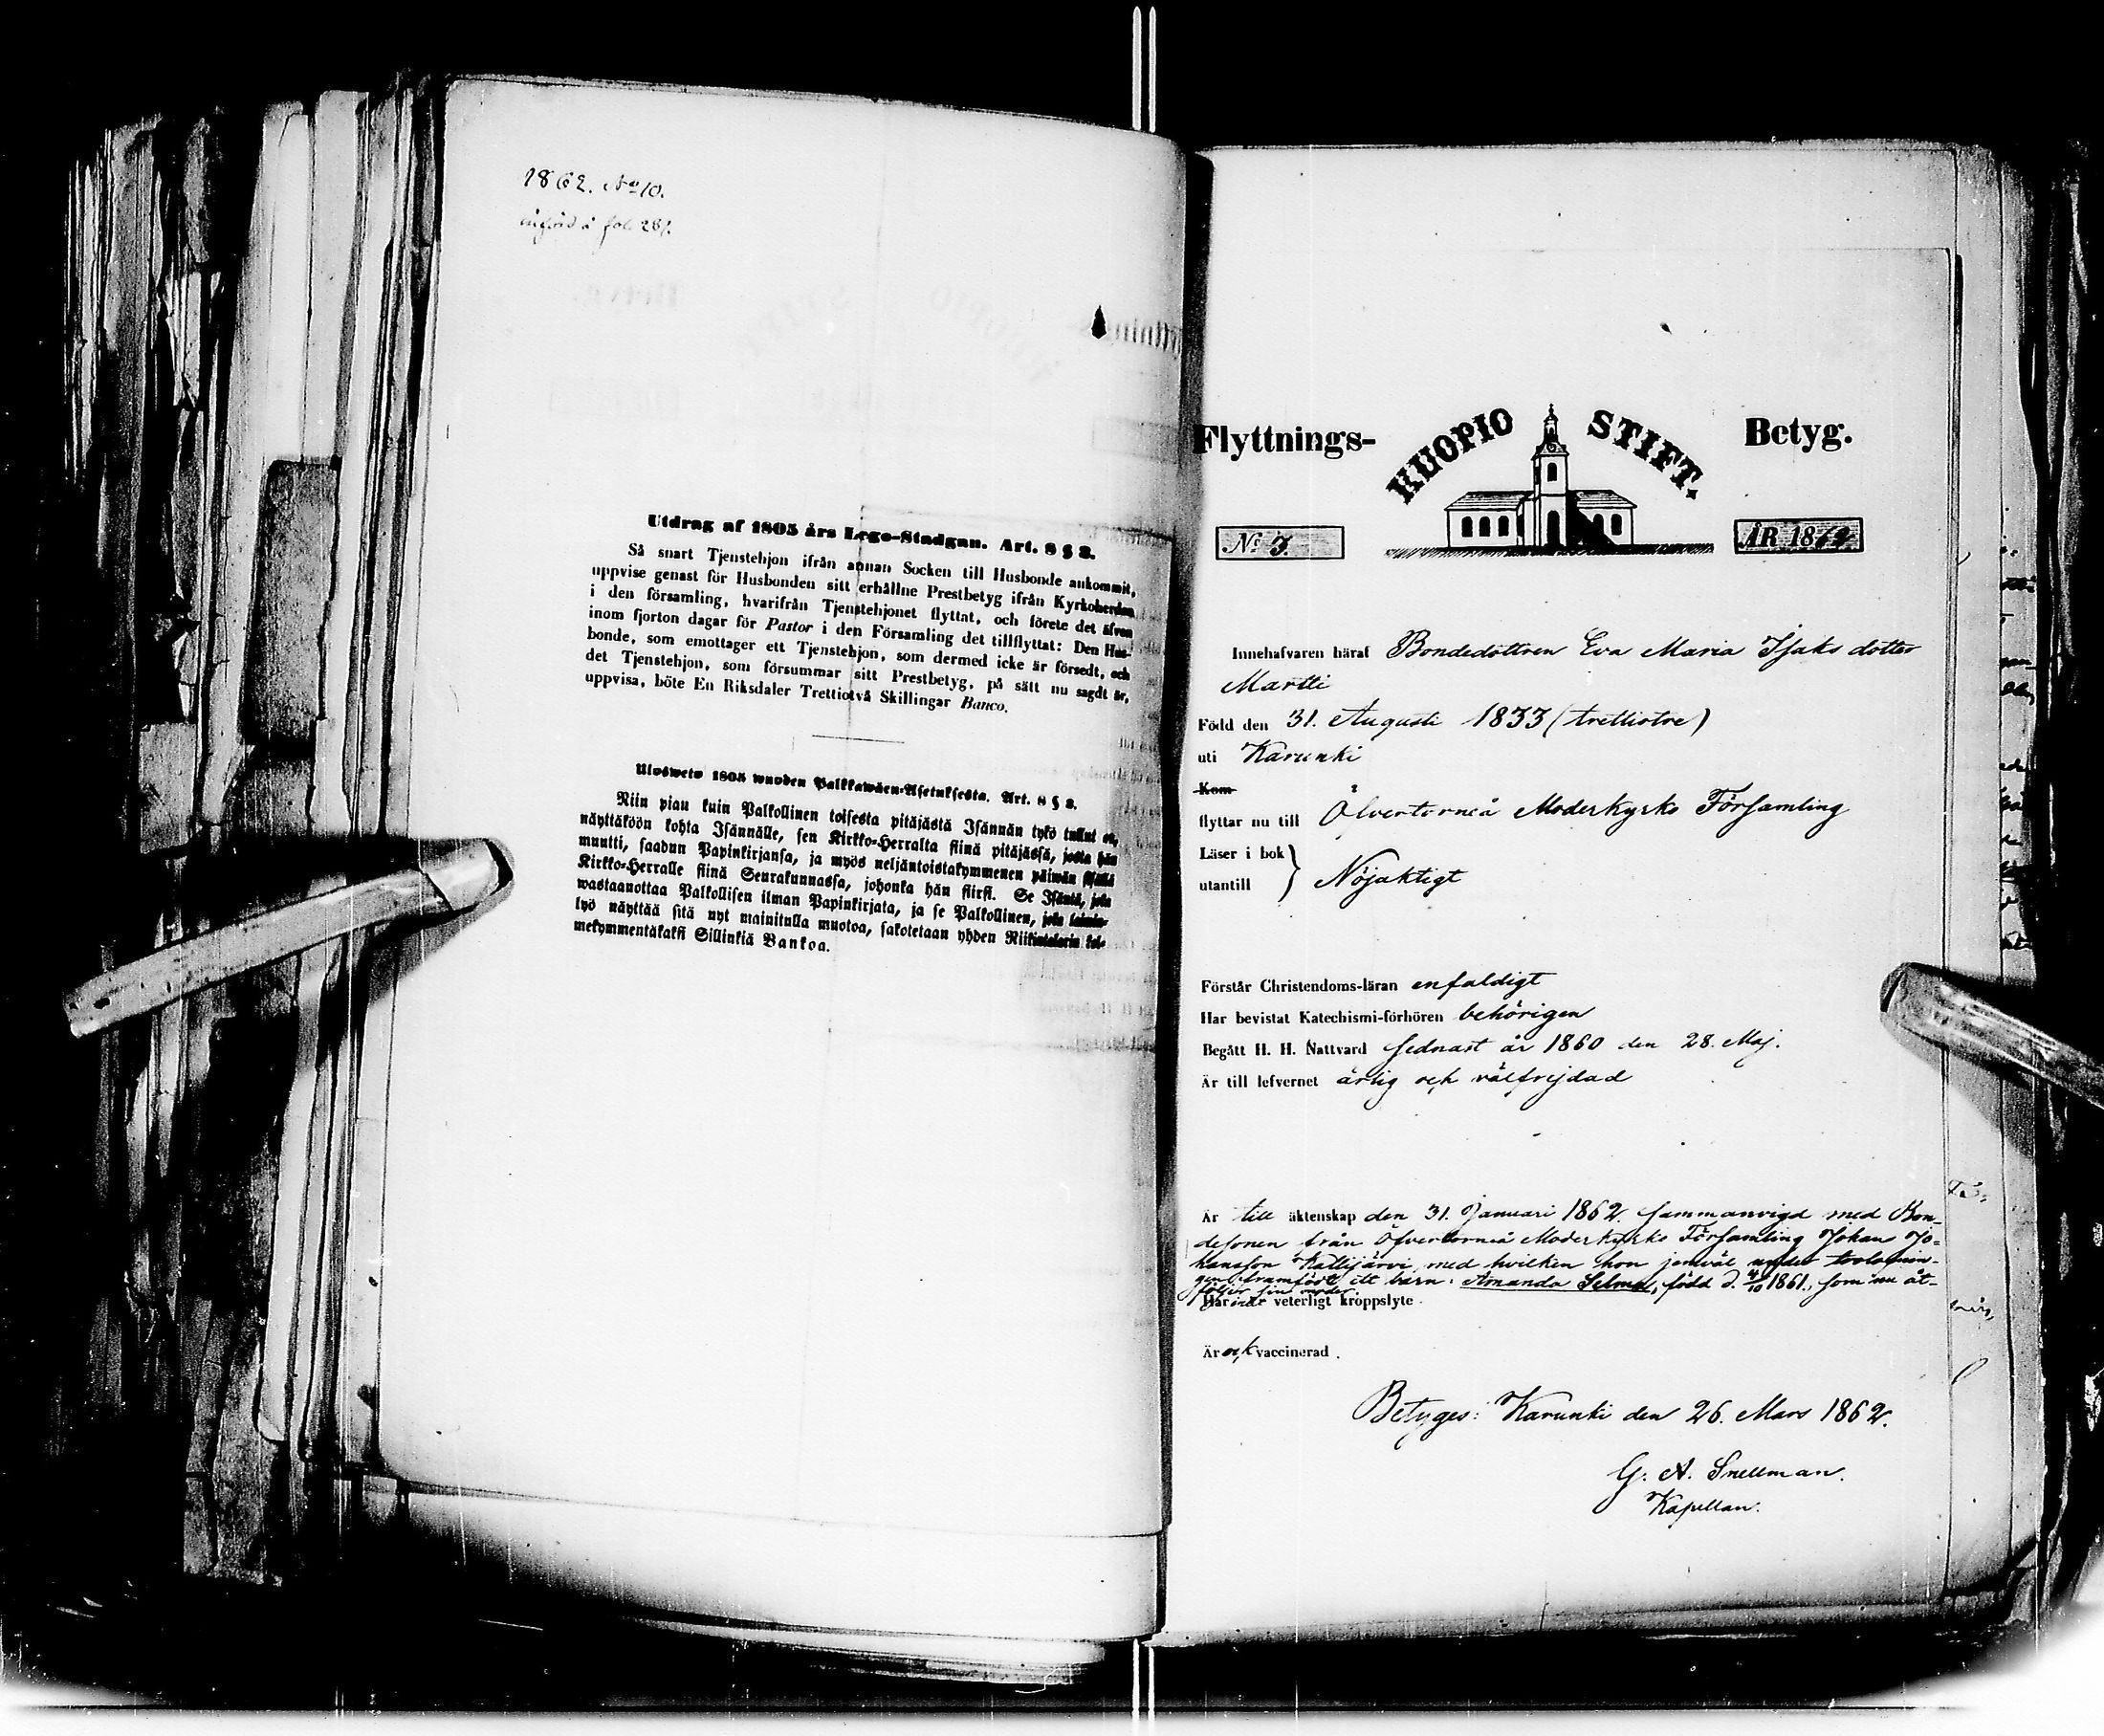 1862. No 10.
införd å fol. 281.
Utdrag af 1805 års Lego-Stadgan. Art. 8 § 2.
Så snart Tjenstehjon ifrån annan Socken till Husbonde ankommit,
uppvise genast för Husbonden sitt erhållne Prestbetyg ifrån Kyrkoherden
i den församling, hvarifrån Tjenstehjonet flyttat, och förete det äfven
inom fjorton dagar för Pastor i den Församling det tillflyttat: Den Hus-
bonde, som emottager ett Tjenstehjon, som dermed icke är försedt, och
det Tjenstehjon, som försummar sitt Prestbetyg, på sätt nu sagdt är,
uppvisa, böte En Riksdaler Trettiotvå Skillingar Banco.
Ulosweto 1805 wuoden Palkkawäen-Asetuksesta. Art. 8 § 2.
Niin pian kuin Palkollinen toisesta pitäjästä Isännän tykö tullut on,
näyttäköön kohta Isännälle, sen Kirkko-Herralta siinä pitäjässä, josta hän
muutti, saadun Papinkirjansa, ja myös neljäntoistakymmenen päiwän sisällä
Kirkko-Herralle siinä Seurakunnassa, johonka hän siirsi. Se Isäntä, jota
wastaanottaa Palkollisen ilman Papinkirjata, ja se Palkollinen, jota laimin-
lyö näyttää sitä nyt mainitulla muotoa, sakotetaan yhden Riikintalerin kol-
mekymmentäkaksi Sillinkiä Bankoa.
Flyttnings- KUOPIO STIFT. Betyg.
No 7. ÅR 1862
Innehafvaren häraf Bondedottren Eva Maria Isaks dotter
Martti
Född den 31. Augusti 1833 (trettiotre)
uti Karunki
Kom
flyttar nu till Öfvertorneå Moderkyrko Församling
Läser i bok }
utantill } Nöjaktigt
Förstår Christendoms-läran enfaldigt
Har bevistat Katechismi-förhören behörigen
Begått H. H. Nattvard sednast år 1860 den 28. Maj.
Är till lefvernet ärlig och välfrejdad
Är till äktenskap den 31. Januari 1862. sammanvigd med Bon-
desonen från Öfvertorneå Moderkyrko Församling Johan Jo-
hansson Kallijärvi, med hvilken hon jemväl under trolofnin-
gen framfödt ett barn: Amanda Selma, född d. 4/10 1861, som nu åt-
följer sin moder
Har intet veterligt kroppslyte.
Är ock vaccinerad.
Betyges: Karunki den 26. Mars 1862.
G. A. Snellman.
Kapellan.